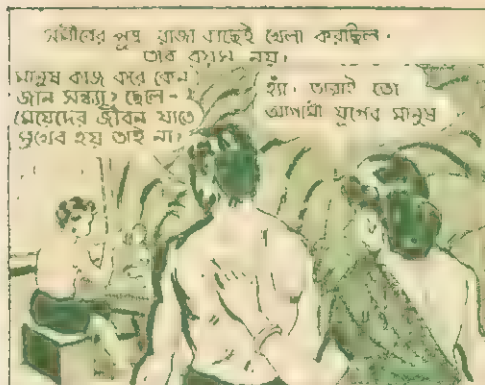 সমীরের পুত্র রাজা কাছেই খেলা করছিল।
তার বয়স নয়।
মানুষ কাজ করে কেন
জান সন্ধ্যা? ছেলে-
মেয়েদের জীবন যাতে
সুখের হয় তাই না?
হ্যাঁ। তারাই তো
আগামী যুগের মানুষ